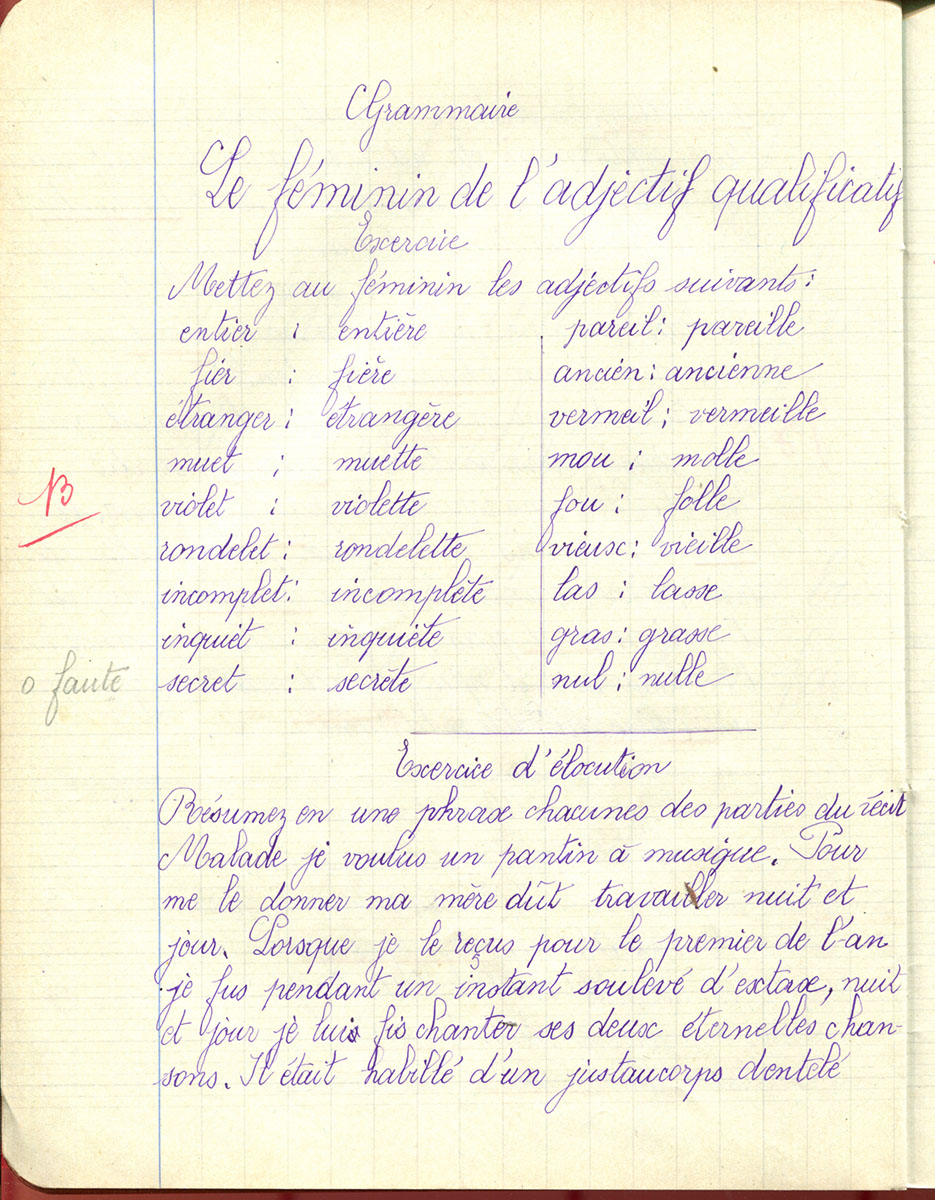 Grammaire
Le féminin de l'adjéctif qualificatif
Exercice
Mettez au féminin les adjéctifs suivants :
entier : entière
fier : fière
étranger : étrangère
muet : muette
violet : violette
rondelet : rondelette
incomplet : incomplète
inquiet : inquiète
secret : secrète
pareil : pareille
ancien : ancienne
vermeil : vermeille
mou : molle
fou : folle
vieux : vieille
las : lasse
gras : grasse
nul : nulle
B
0 faute
Exercice d'élocution
Résumez en une phrase chacunes des parties du récit
Malade je voulus un pantin à musique. Pour
me le donner ma mère dût travailler nuit et
jour. Lorsque je le reçus pour le premier de l'an
je fus pendant un instant soulevé d'extase, nuit
et jour je lui fis chanter ses deux éternelles chan-
sons. Il était habillé d'un justaucorps dentelé